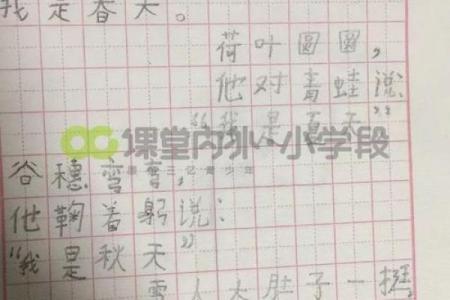 我是春天。
荷叶圆圆，
他对青蛙说
“我是夏天”
课堂内外·小学段
谷穗弯弯，
他鞠着躬说：
“我是秋天”
雪人大肚子一挺